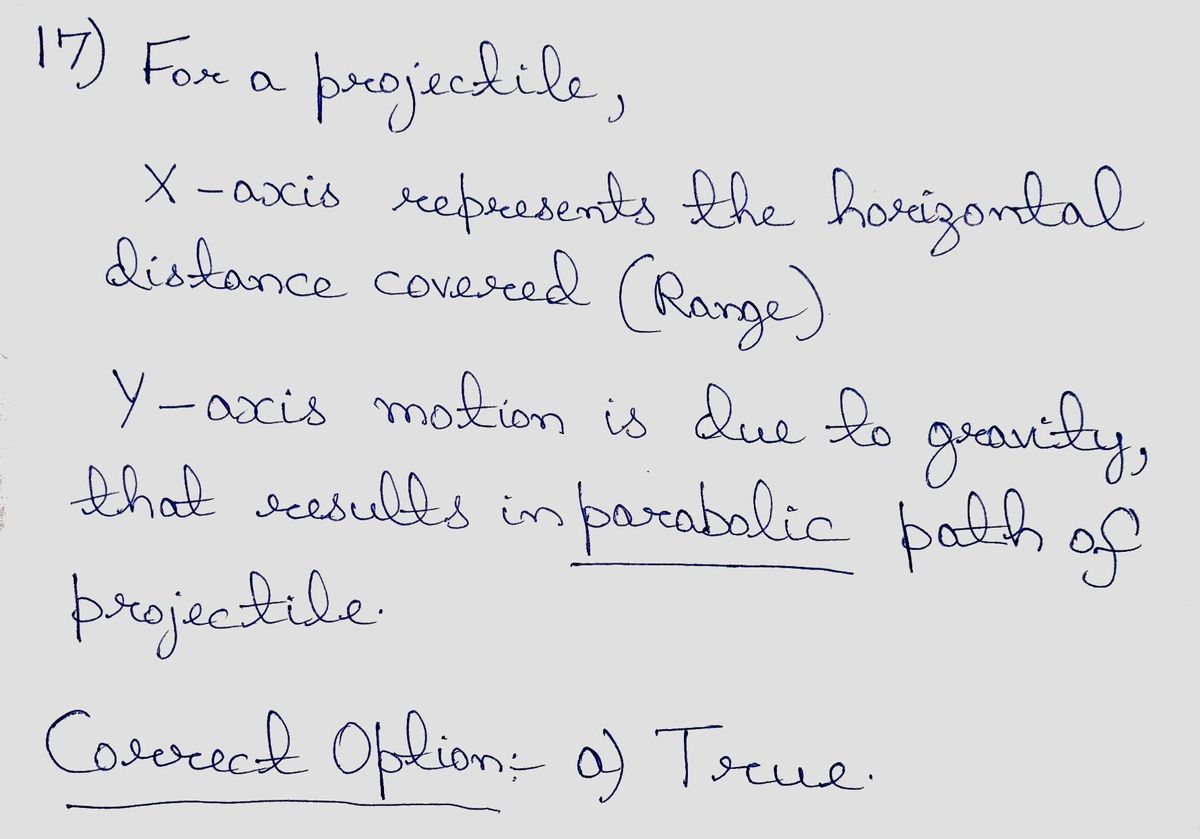 17) For a projectile,
X-axis represents the horizontal
distance covered (Range)
Y-axis motion is due to gravity,
that results in parabolic path of
projectile.
Correct Option:- a) True.